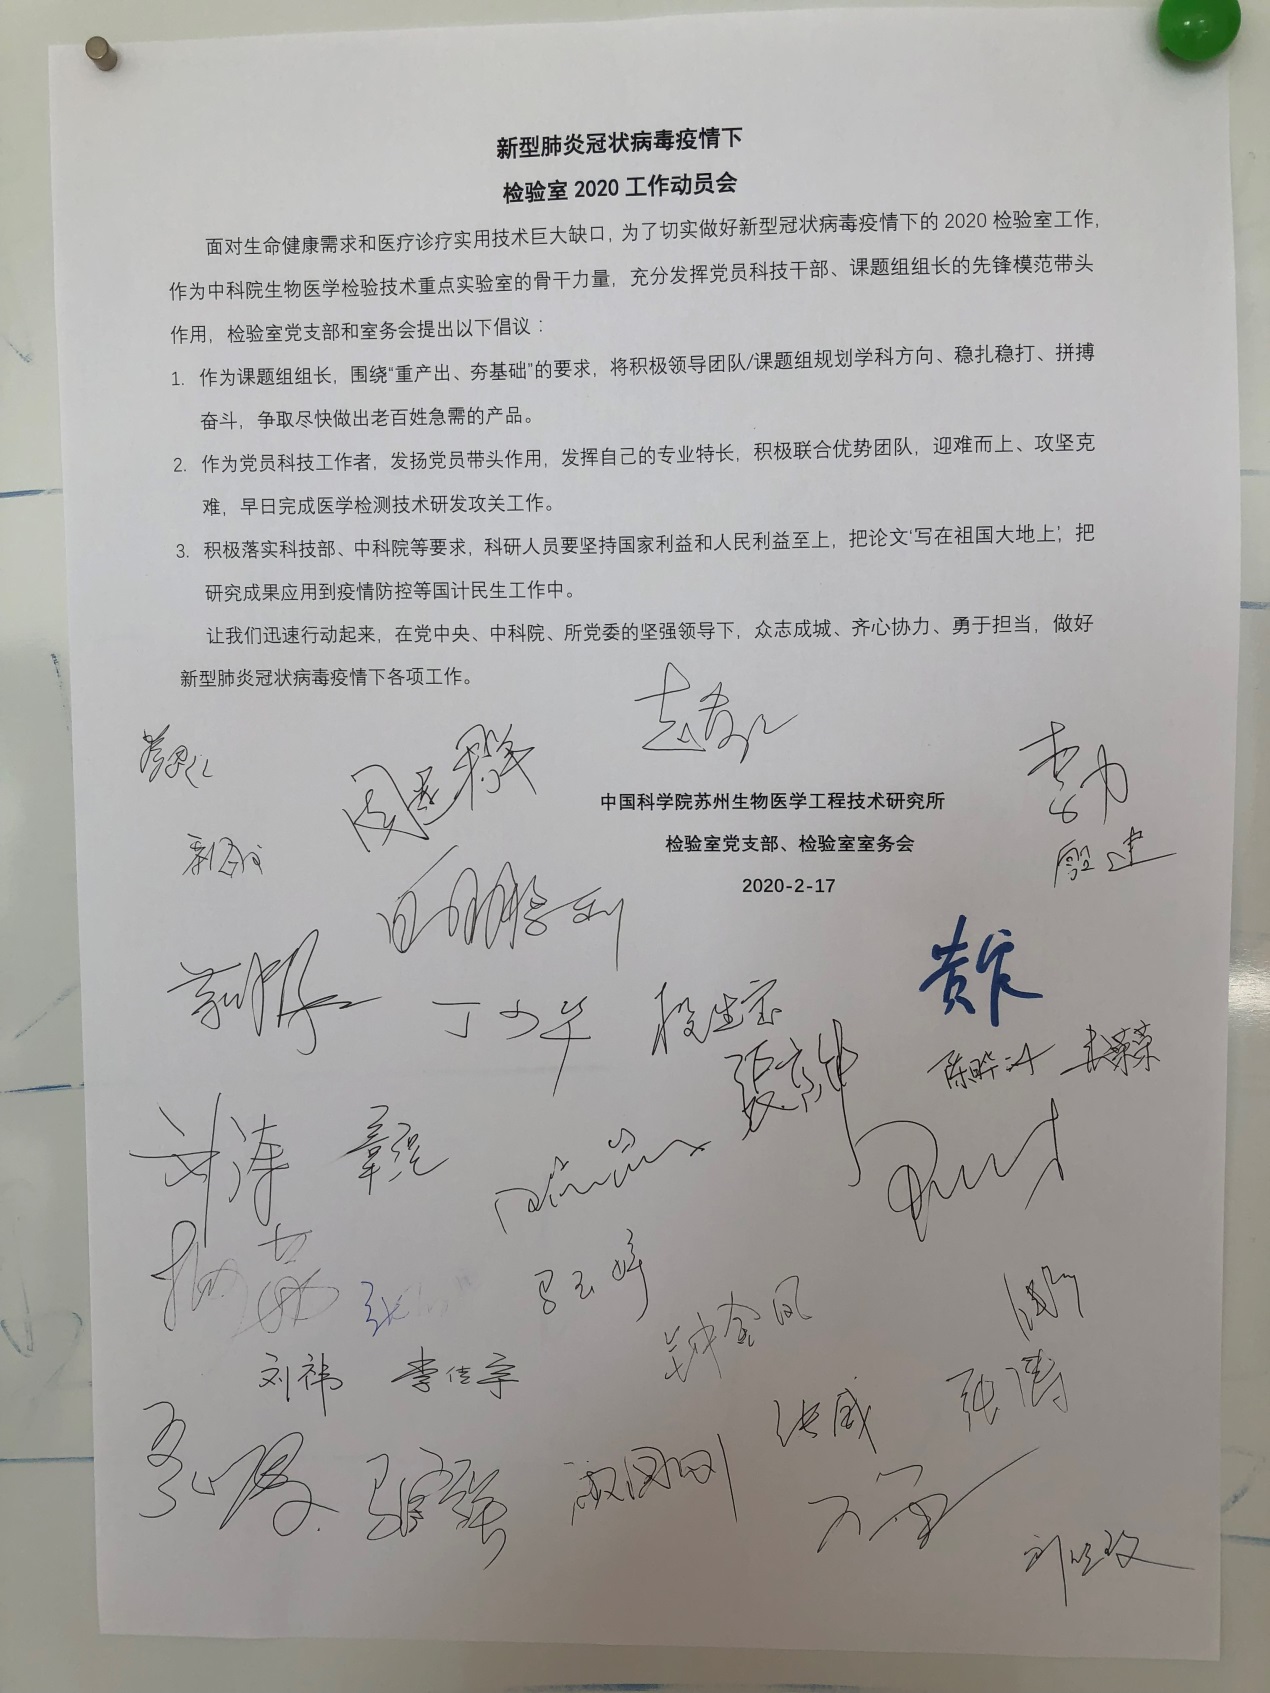 新型肺炎冠状病毒疫情下
检验室 2020 工作动员会
面对生命健康需求和医疗诊疗实用技术巨大缺口，为了切实做好新型冠状病毒疫情下的 2020 检验室工作，
作为中科院生物医学检验技术重点实验室的骨干力量，充分发挥党员科技干部、课题组组长的先锋模范带头
作用，检验室党支部和室务会提出以下倡议：
1. 作为课题组组长，围绕“重产出、夯基础”的要求，将积极领导团队/课题组规划学科方向、稳扎稳打、拼搏
奋斗，争取尽快做出老百姓急需的产品。
2. 作为党员科技工作者，发扬党员带头作用，发挥自己的专业特长，积极联合优势团队，迎难而上、攻坚克
难，早日完成医学检测技术研发攻关工作。
3. 积极落实科技部、中科院等要求，科研人员要坚持国家利益和人民利益至上，把论文‘写在祖国大地上’，把
研究成果应用到疫情防控等国计民生工作中。
让我们迅速行动起来，在党中央、中科院、所党委的坚强领导下，众志成城、齐心协力、勇于担当，做好
新型肺炎冠状病毒疫情下各项工作。
中国科学院苏州生物医学工程技术研究所
检验室党支部、检验室室务会
2020-2-17
丁少华
刘涛
章强
马玉婷
钟金凤
刘祎 李佳宇
张威
张涛